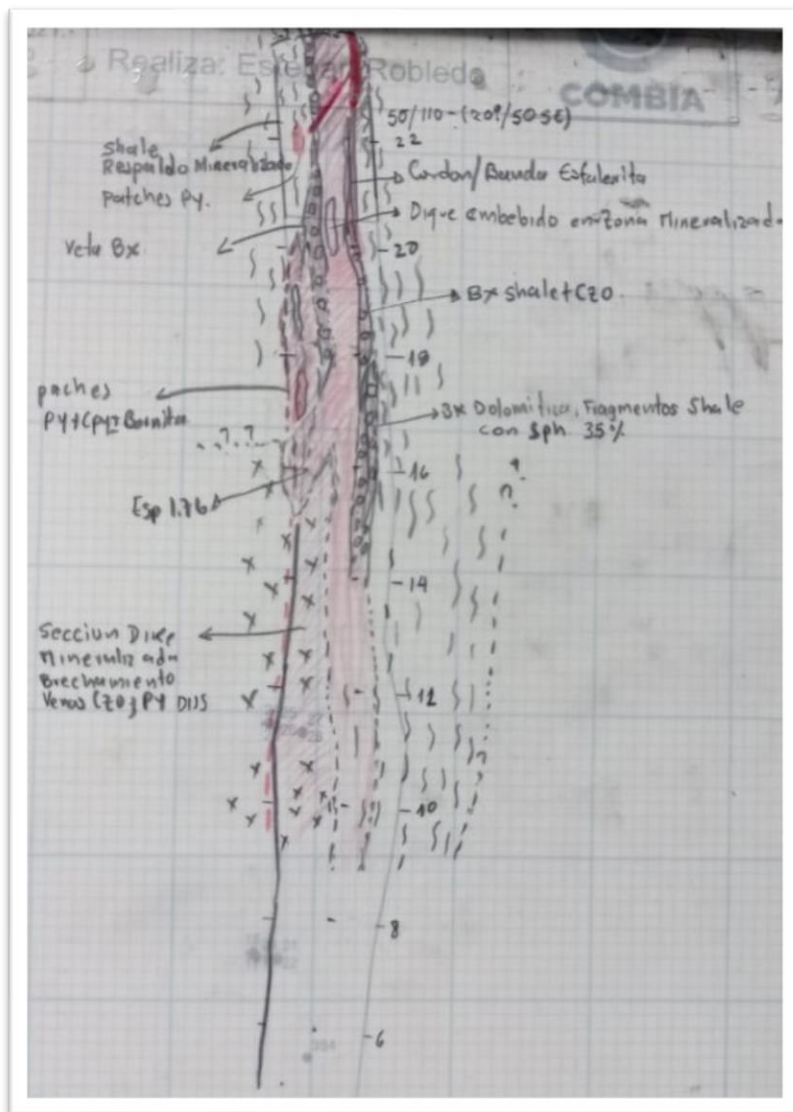 Realiza: Esteban Robledo
COMBIA
50/110-(20º/50SE)
22
Shale
Respaldo Mineralizado
patches Py.
Cordon/Banda Esfalerita
Dique embebido en Zona Mineralizada
Veta Bx
20
Bx shale + CZO.
18
paches
PY+Cpy±Bornita
Bx Dolomitica, Fragmentos Shale
con Sph 35%
..?.?..
16
?
?
Esp 1.76
14
Seccion Dike
Mineralizada
Brechamiento
Venas CZO; PY DISS
12
?
10
8
6